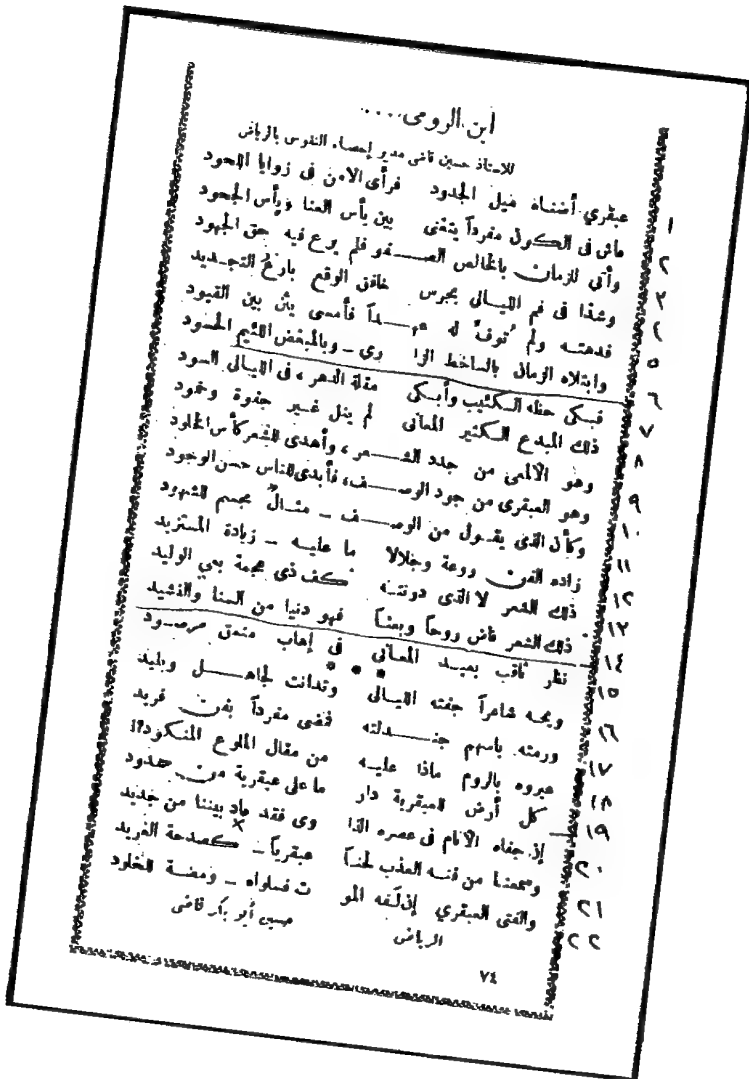 ابن الرومى....
للاستاذ حسين قاضى مدير إحصاء النفوس بالرياض
١ عبقري أضناه ميل الجدود فرأى الامن فى زوايا اللحود
٢ عاش فى الكون مفرداً يتغنى بين يأس العنا ويأس الجحود
٣ وأتى للزمان بالخالص الصـفو فلم يرع فيه حق الجهود
٤ وشذا فى فم الليالى بجرس خافق الوقع بارع التجديد
٥ فدهته ولم توف له عهـداً فأمسى يئن بين القيود
٦ وابتلاه الزمان بالساخط الزا رى – وبالمبغض اللئيم الحسود
٧ فبكى حظه الكئيب وأبـكى مقلة الدهر، فى الليالى السود
٨ ذلك المبدع الكثير المعانى لم ينل غير جفوة وخمود
٩ وهو الالمعى من جدد الشـعر، وأهدى للشعر كأس الخلود
١٠ وهو العبقرى من جود الوصـف، فأبدى للناس حسن الوجود
١١ وكأن الذى يقـول من الوصـف – مثـال مجسم للشهود
١٢ زاده الفن روعة وجلالا ما عليـه – زيادة المستزيد
١٣ ذلك الشعر لا الذى دونتـه كف ذى عجمة بعى الوليد
١٤ ذلك الشعر فاض روحاً ومعنـاً فهو دنيا من المنا والنشيد
١٥ نظر ثاقب بعيـد المعـانى فى إهاب منمق مرصـود
* * *
١٦ ويحه شاعراً جفته الليـالى وتدانت لجاهـل وبليد
١٧ ورمته باسهم جنـدلته فمضى مفرداً بفن فريد
١٨ عيروه بالروم ماذا عليـه من مقال الملوع المنـكود؟!
١٩ كل أرض للعبقرية دار ما على عبقرية من حدود
٢٠ إذ جفاه الانام فى عصره الذا وى فقد عاد بيننا من جديد
٢١ وسمعنـا من فنـه العذب لحنـاً عبقرياً – كصدحة الغريد
٢٢ والفتى العبقري إن لّـفه المو ت فسلواه – ومضـة للخلود
الرياض حسين أبو بكر قاضى
٧٤